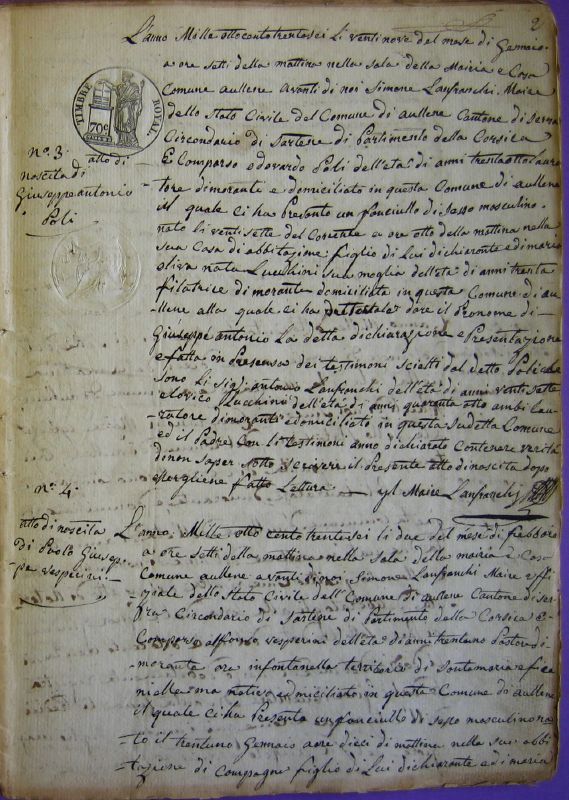 2
L'anno Mille otto cento trentasei li venti nove del mese di Gennaio
a ore setti della mattina nella sala della Mairia e Casa
Comune aullene avanti di noi Simone Lanfranchi Maire
dello Stato Civile del Comune di aullene Cantone di Serra
Circondario di Sartene di Partimento della Corsica
E Comparso odoardo Poli dell'età di anni trentaotto Lavora
tore dimorante e domiciliato in questa Comune di aullene
il quale ci ha Presento un fanciullo di Sesso masculino
nato li venti sette del Corente a ore otto della mattina nella
sua Casa di abbitazione figlio di Lui dichiarante e di maria
oliva nata Lucchini sua moglia dell'età di anni trenta
filatrice dimorante domiciliata in questa Comune di au
llene alla quale ci ha dare il Pronome di
Giuseppe antonio La detta dichiarazione e Presentazione
e fatta in Presensa dei testimoni scielti dal detto Poli che
sono Li sigi antonio Lanfranchi dell'età di anni venti sette
e Lucchini dell'età di anni quaranta otto ambi Lav
ratore dimoranti e domiciliato in questa sudetta Comune
ed il Padre con li testimoni anno dichiarato
di non Saper Sotto Scrivere il Presente atto di nascita dopo
fatto Lettura il Maire Lanfranchi
TIMBRE ROYAL
70c
nº. 3.
atto di
nascita di
Giuseppe antonio
Poli
nº. 4.
atto di nascita
di Paolo Giusep
pe vesperini
L'anno Mille otto cento trentasei li due del mese di frabbaro
a ore setti della mattina nella Sala della mairia e Casa
Comune aullene avanti di noi Simone Lanfranchi Maire uffi
ziale dello Stato Civile dell Comune di aullene Cantone di Ser
ra Circondario di Sartene di Partimento della Corsica e
Comparso alfonso vesperini dell'età di anni trentuno Pastore di
morante ora infontanella territorio di
ma nativo e domiciliato in questa Comune di aullene
il quale ci ha Presenta un fanciullo di Sesso masculino na
to il trentuno Gennaio a ore dieci di mattina nella sua abbi
tazione di Campagna figlio di Lui dichiarante e di maria